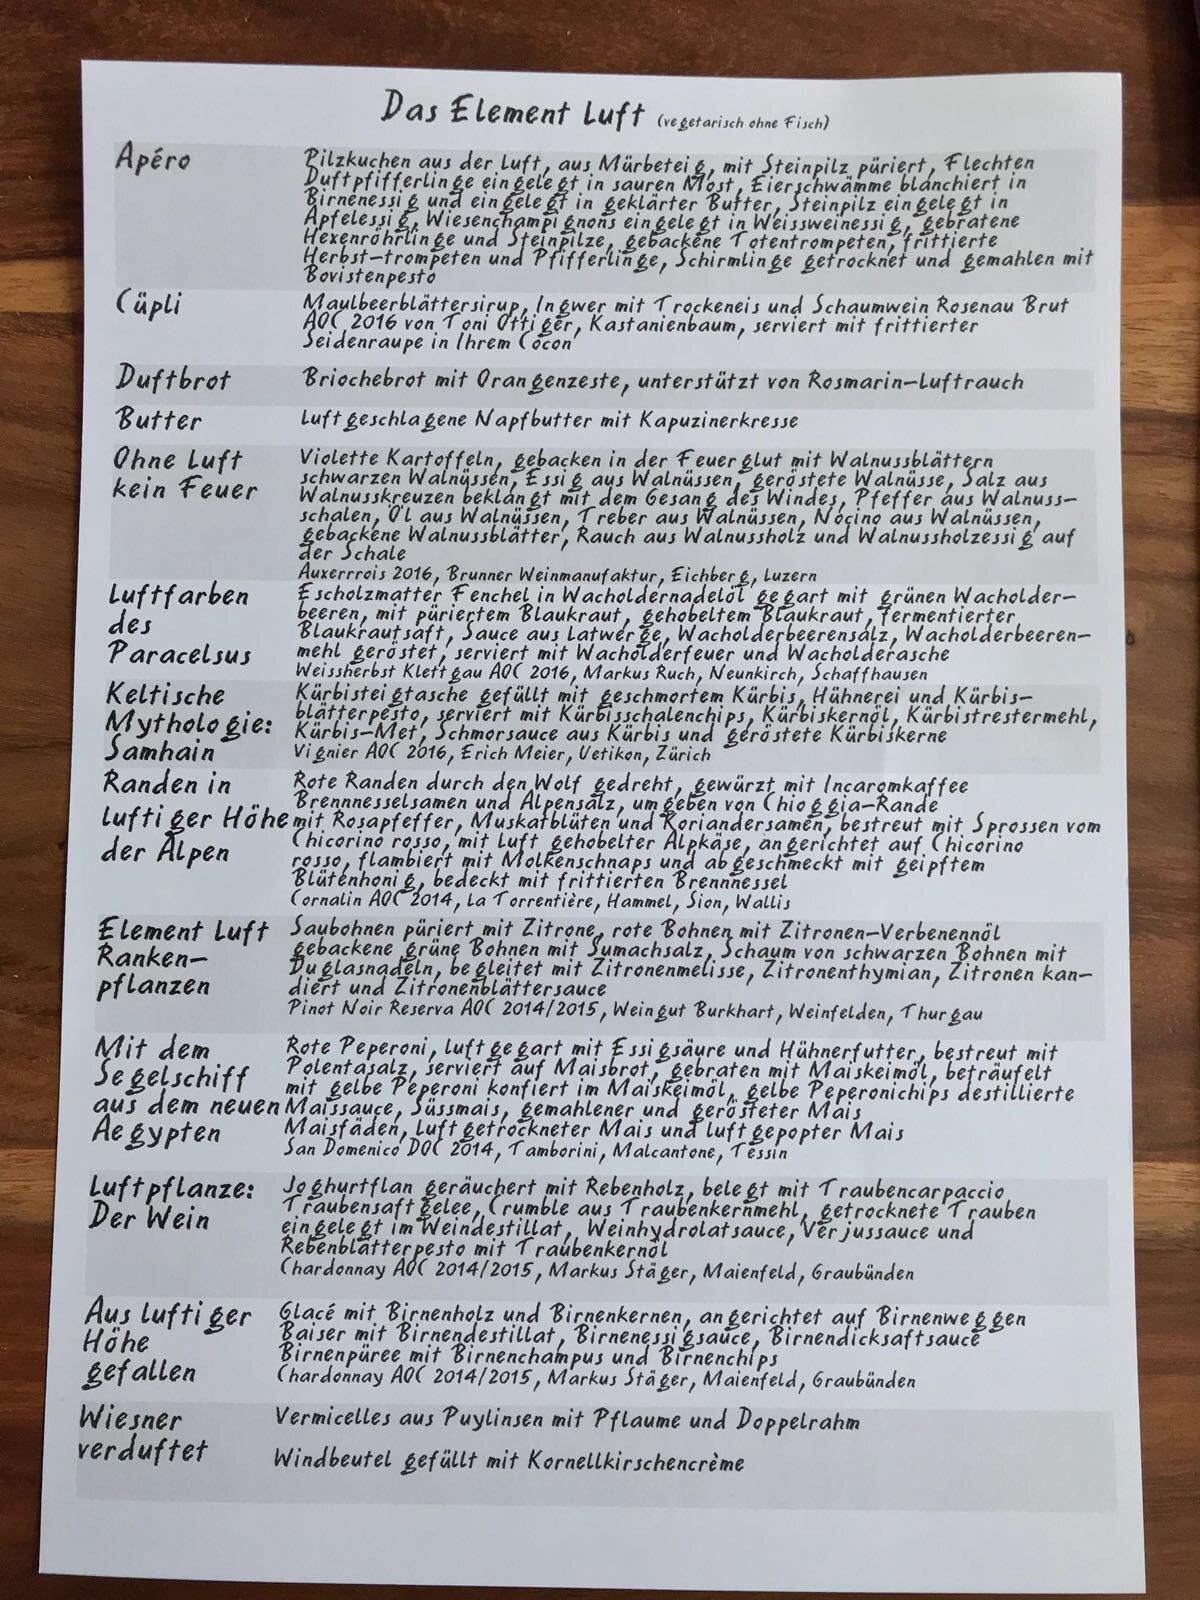 Das Element Luft (vegetarisch ohne Fisch)
Apéro
Pilzkuchen aus der Luft, aus Mürbeteig, mit Steinpilz püriert, Flechten
Duftpfifferlinge eingelegt in sauren Most, Eierschwämme blanchiert in
Birnenessig und eingelegt in geklärter Butter, Steinpilz eingelegt in
Apfelessig, Wiesenchampignons eingelegt in Weissweinessig, gebratene
Hexenröhrlinge und Steinpilze, gebackene Totentrompeten, frittierte
Herbst-trompeten und Pfifferlinge, Schirmlinge getrocknet und gemahlen mit
Bovistenpesto
Cüpli
Maulbeerblättersirup, Ingwer mit Trockeneis und Schaumwein Rosenau Brut
AOC 2016 von Toni Ottiger, Kastanienbaum, serviert mit frittierter
Seidenraupe in Ihrem Cocon
Duftbrot
Briochebrot mit Orangenzeste, unterstützt von Rosmarin-Luftrauch
Butter
Luftgeschlagene Napfbutter mit Kapuzinerkresse
Ohne Luft
kein Feuer
Violette Kartoffeln, gebacken in der Feuerglut mit Walnussblättern
schwarzen Walnüssen, Essig aus Walnüssen, geröstete Walnüsse, Salz aus
Walnusskreuzen beklangt mit dem Gesang des Windes, Pfeffer aus Walnuss-
schalen, Öl aus Walnüssen, Treber aus Walnüssen, Nocino aus Walnüssen,
gebackene Walnussblätter, Rauch aus Walnussholz und Walnussholzessig auf
der Schale
Auxerrrois 2016, Brunner Weinmanufaktur, Eichberg, Luzern
Luftfarben
des
Paracelsus
Escholzmatter Fenchel in Wacholdernadelöl gegart mit grünen Wacholder-
beeren, mit püriertem Blaukraut, gehobeltem Blaukraut, fermentierter
Blaukrautsaft, Sauce aus Latwerge, Wacholderbeerensalz, Wacholderbeeren-
mehl geröstet, serviert mit Wacholderfeuer und Wacholderasche
Weissherbst Klettgau AOC 2016, Markus Ruch, Neunkirch, Schaffhausen
Keltische
Mythologie:
Samhain
Kürbisteigtasche gefüllt mit geschmortem Kürbis, Hühnerei und Kürbis-
blätterpesto, serviert mit Kürbisschalenchips, Kürbiskernöl, Kürbistrestermehl,
Kürbis-Met, Schmorsauce aus Kürbis und geröstete Kürbiskerne
Vignier AOC 2016, Erich Meier, Uetikon, Zürich
Randen in
luftiger Höhe
der Alpen
Rote Randen durch den Wolf gedreht, gewürzt mit Incaromkaffee
Brennnesselsamen und Alpensalz, umgeben von Chioggia-Rande
mit Rosapfeffer, Muskatblüten und Koriandersamen, bestreut mit Sprossen vom
Chicorino rosso, mit Luft gehobelter Alpkäse, angerichtet auf Chicorino
rosso, flambiert mit Molkenschnaps und abgeschmeckt mit geipftem
Blütenhonig, bedeckt mit frittierten Brennnessel
Cornalin AOC 2014, La Torrentière, Hammel, Sion, Wallis
Element Luft
Ranken-
pflanzen
Saubohnen püriert mit Zitrone, rote Bohnen mit Zitronen-Verbenennöl
gebackene grüne Bohnen mit Sumachsalz, Schaum von schwarzen Bohnen mit
Duglasnadeln, begleitet mit Zitronenmelisse, Zitronenthymian, Zitronen kan-
diert und Zitronenblättersauce
Pinot Noir Reserva AOC 2014/2015, Weingut Burkhart, Weinfelden, Thurgau
Mit dem
Segelschiff
aus dem neuen
Aegypten
Rote Peperoni, luftgegart mit Essigsäure und Hühnerfutter, bestreut mit
Polentasalz, serviert auf Maisbrot, gebraten mit Maiskeimöl, beträufelt
mit gelbe Peperoni konfiert im Maiskeimöl, gelbe Peperonichips destillierte
Maissauce, Süssmais, gemahlener und gerösteter Mais
Maisfäden, luftgetrockneter Mais und luftgepopter Mais
San Domenico DOC 2014, Tamborini, Malcantone, Tessin
Luftpflanze:
Der Wein
Joghurtflan geräuchert mit Rebenholz, belegt mit Traubencarpaccio
Traubensaftgelee, Crumble aus Traubenkernmehl, getrocknete Trauben
eingelegt im Weindestillat, Weinhydrolatsauce, Verjussauce und
Rebenblätterpesto mit Traubenkernöl
Chardonnay AOC 2014/2015, Markus Stäger, Maienfeld, Graubünden
Aus luftiger
Höhe
gefallen
Glacé mit Birnenholz und Birnenkernen, angerichtet auf Birnenweggen
Baiser mit Birnendestillat, Birnenessigsauce, Birnendicksaftsauce
Birnenpüree mit Birnenchampus und Birnenchips
Chardonnay AOC 2014/2015, Markus Stäger, Maienfeld, Graubünden
Wiesner
verduftet
Vermicelles aus Puylinsen mit Pflaume und Doppelrahm
Windbeutel gefüllt mit Kornellkirschencrème